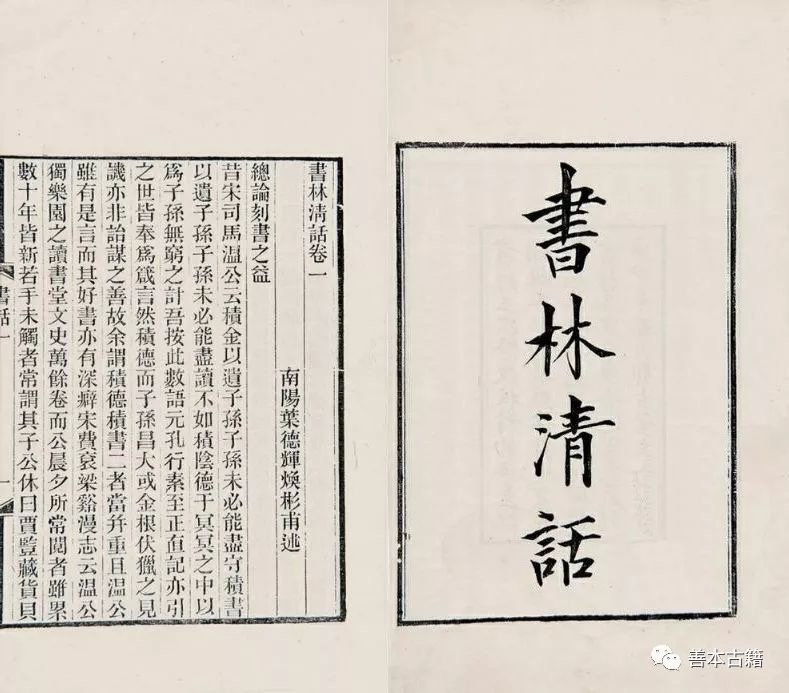 書林清話
書林淸話卷一
南陽葉德輝煥彬甫述
總論刻書之益
昔宋司馬溫公云積金以遺子孫子孫未必能盡守積書
以遺子孫子孫未必能盡讀不如積陰德于冥冥之中以
爲子孫無窮之計吾按此數語元孔行素至正直記亦引
之世皆奉爲箴言然積德而子孫昌大或金根伏獵之見
譏亦非詒謀之善故余謂積德積書二者當并重且溫公
雖有是言而其好書亦有深癖宋費袞梁谿漫志云溫公
獨樂園之讀書堂文史萬餘卷而公晨夕所常閱者雖累
數十年皆新若手未觸者常謂其子公休曰賈豎藏貨貝
書話一
一
善本古籍